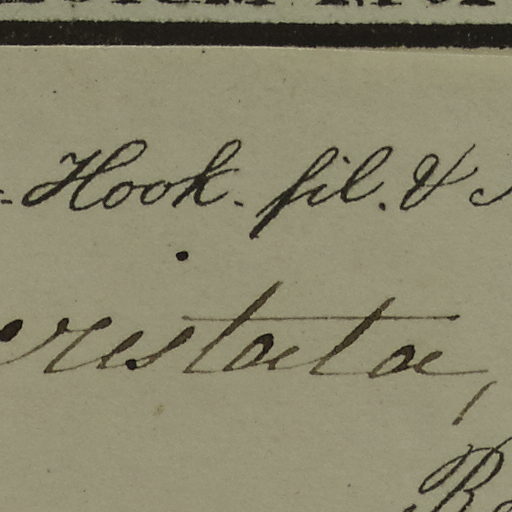 Hook. fil. &
cristata,